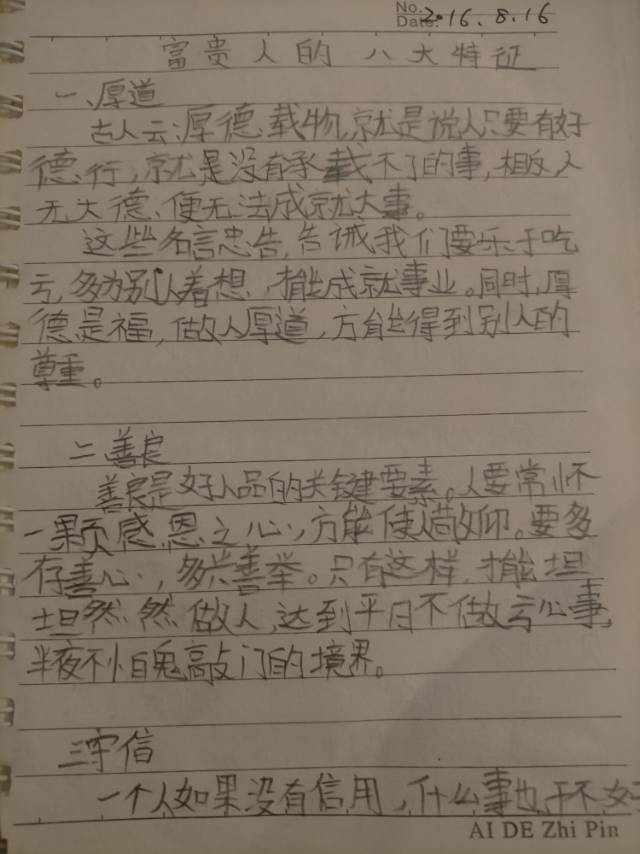 No.
Date. 2016.8.16
富贵人的八大特征
一、厚道
古人云:厚德载物,就是说人只要有好
德行,就是没有承载不了的事,相反,人
无大德,便无法成就大事。
这些名言忠告,告诫我们要乐于吃
亏,多为别人着想,才能成就事业。同时,厚
德是福,做人厚道,方能得到别人的
尊重。
二善良
善良是好人品的关键要素。人要常怀
一颗感恩之心,方能使人敬仰。要多
存善心,多兴善举。只有这样,才能坦
坦然然做人,达到平日不做亏心事,
半夜不怕鬼敲门的境界。
三守信
一个人如果没有信用,什么事也干不好
AI DE Zhi Pin